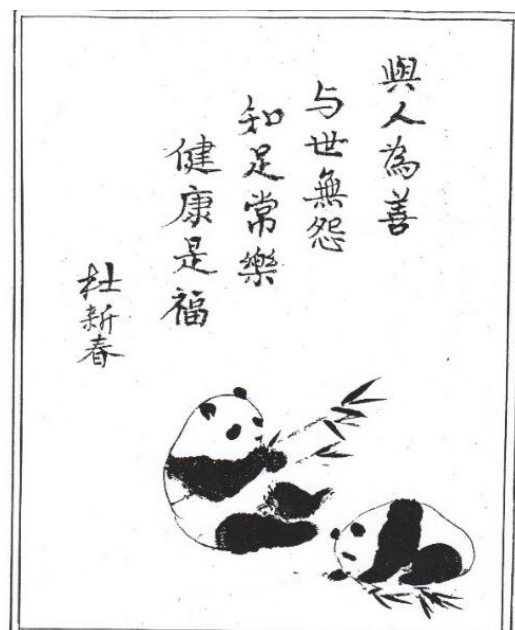 與人為善
与世無怨
知足常樂
健康是福
杜新春